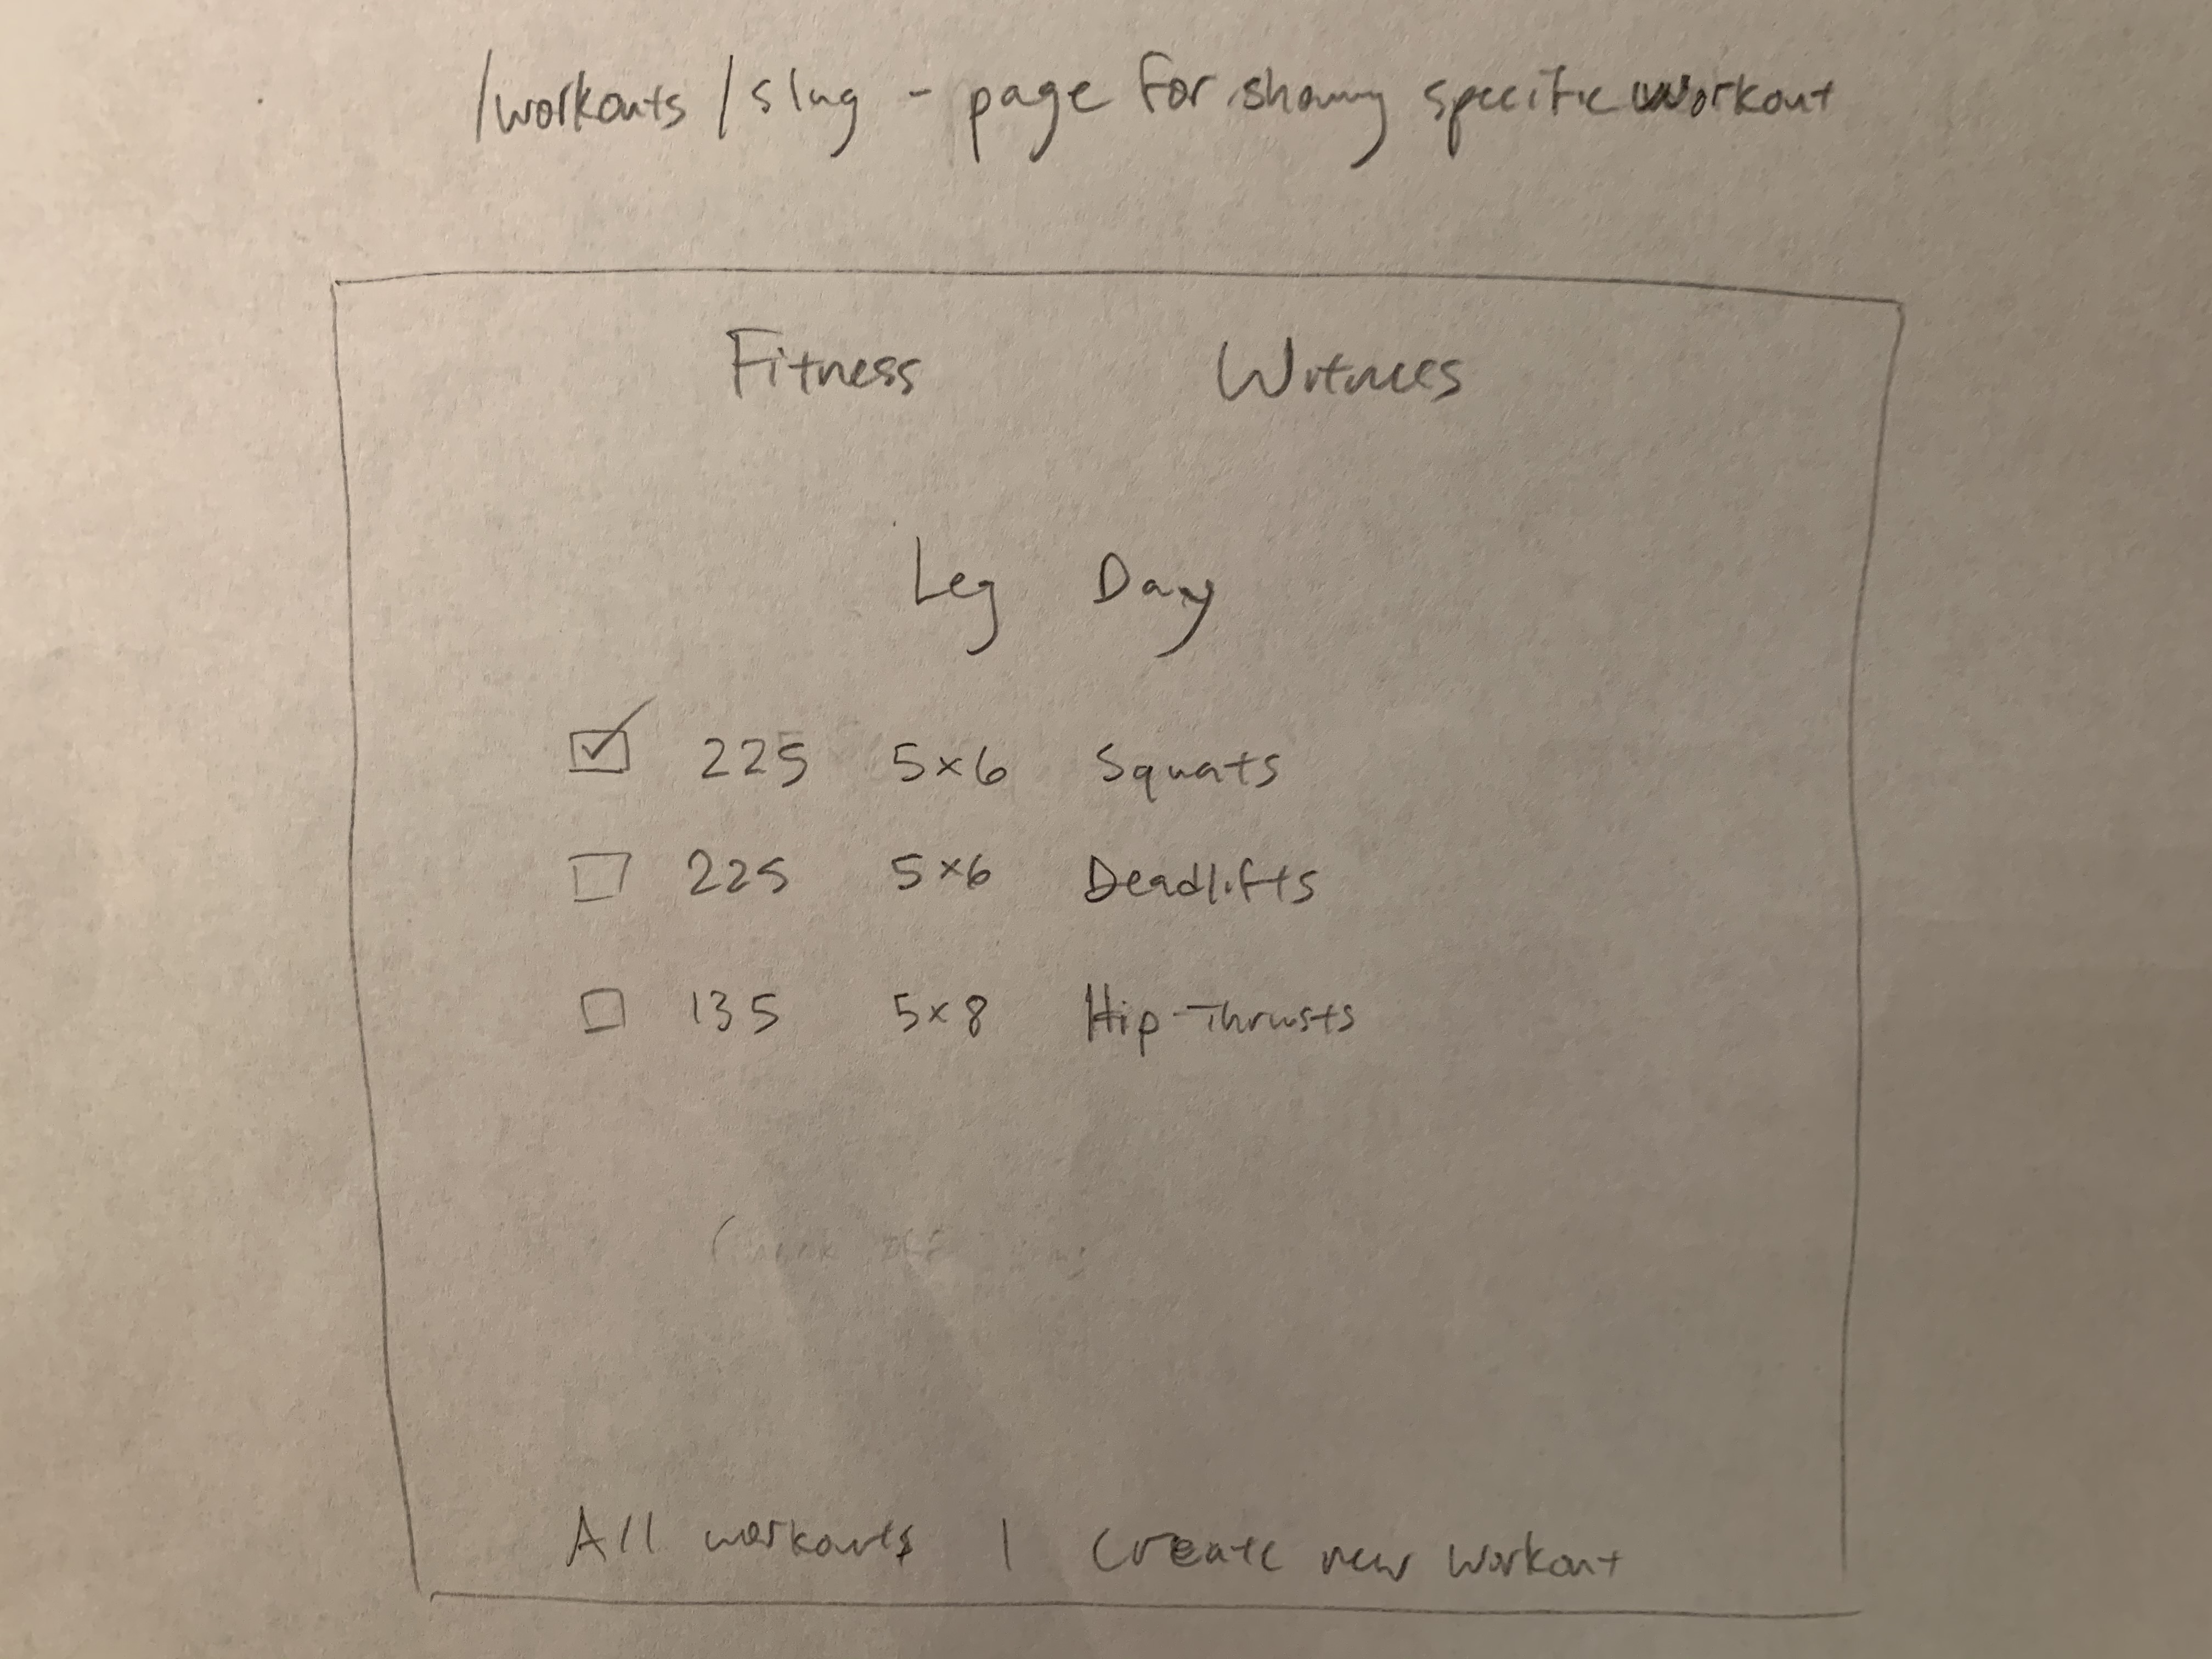 /workouts/slug - page for showing specific workout
Fitness Witness
Leg Day
225 5x6 Squats
225 5x6 Deadlifts
135 5x8 Hip-Thrusts
All workouts | Create new workout